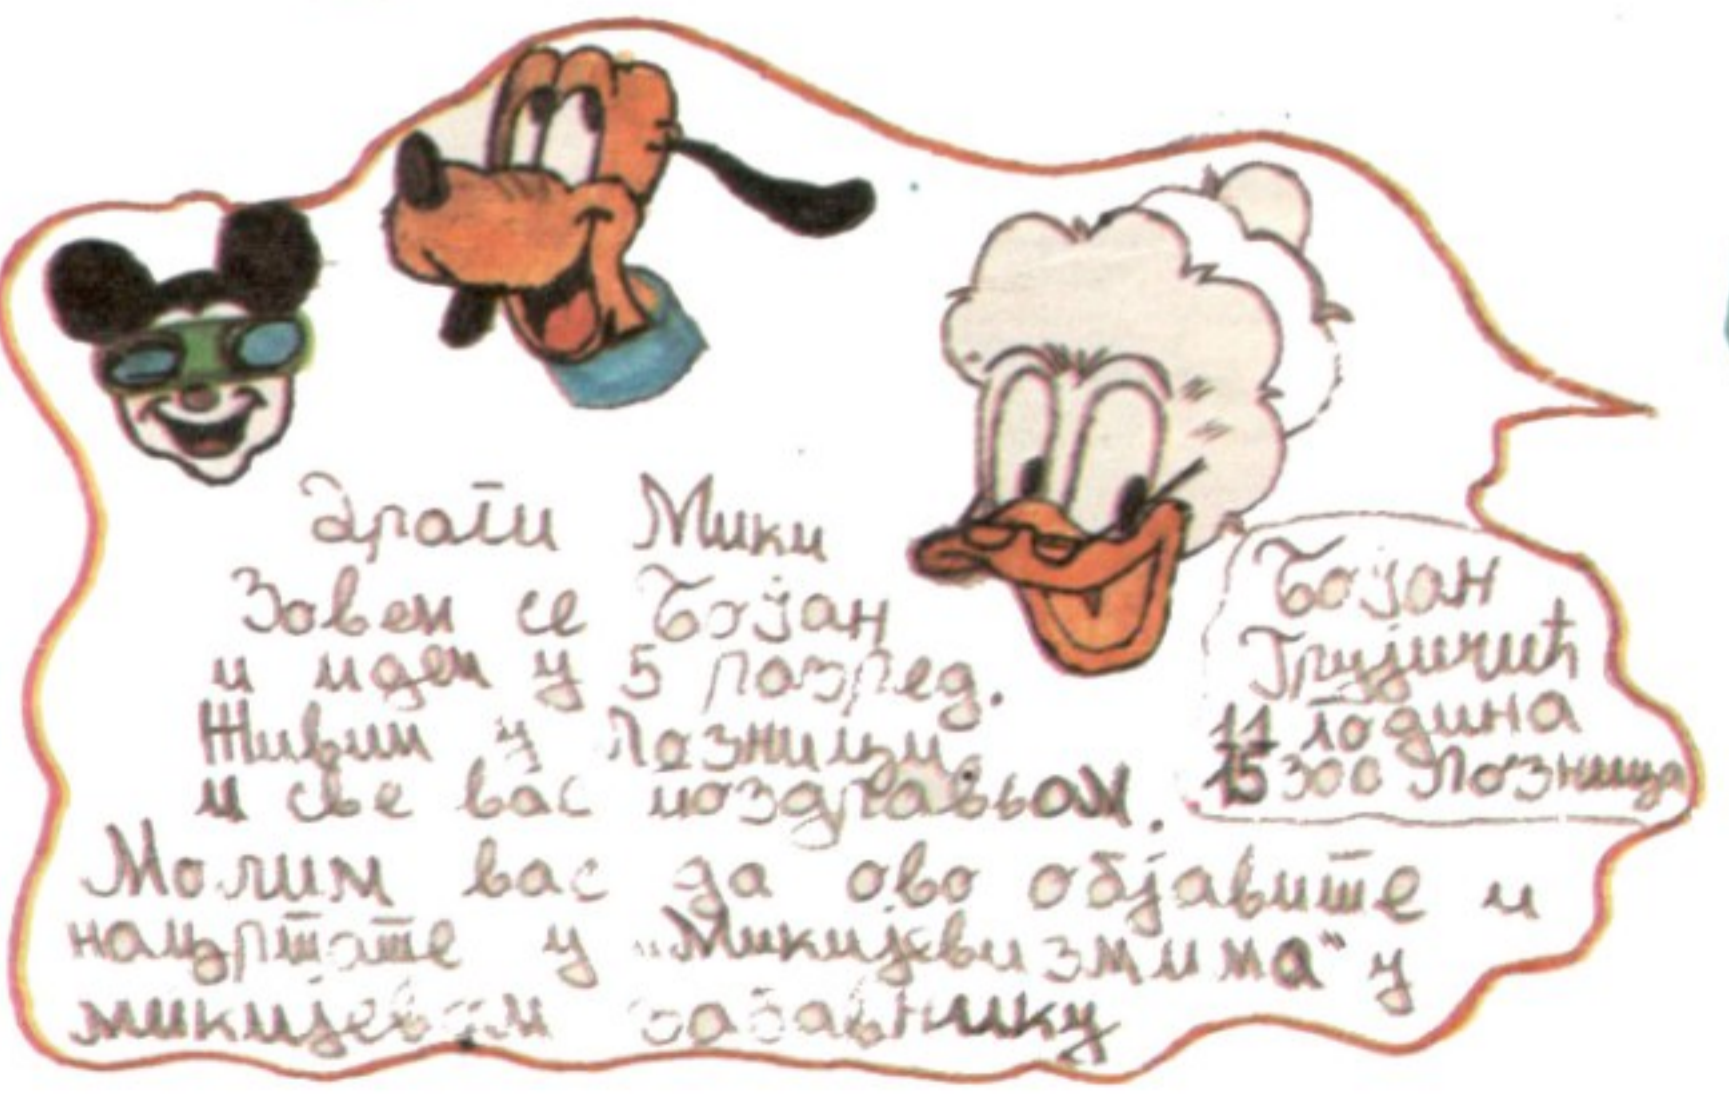 Драги Мики
Зовем се Бојан
и идем у 5 разред.
Живим у Лозници
и све вас поздрављам.
Бојан
Грујичић
11 година
15300 Лозница
Молим вас да ово објавите и
нацртате у „Микијевизмима“ у
микијевом забавнику